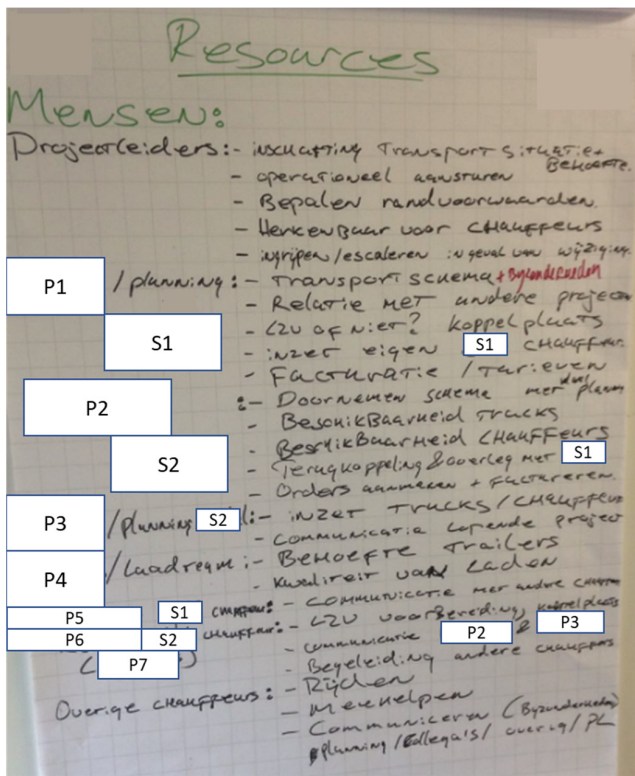 Resources
Mensen:
Projectleiders: - inschatting Transport situatie +
Behoefte.
- operationeel aansturen
- Bepalen randvoorwaarden.
- Herkenbaar voor chauffeurs
- ingrijpen/escaleren in geval van wijziging.
P1 /planning: - Transport schema + Byzonderheden
- Relatie met andere projecten
S1 - LZV of niet? koppelplaats
- inzet eigen S1 chauffeur.
- Facturatie / Tarieven
P2 :- Doornemen schema met planning
- Beschikbaarheid Trucks
S2 - Beschikbaarheid chauffeurs
- Terugkoppeling & overleg met S1
- Orders aanmaken + factureren.
P3 /planning S2 :- inzet Trucks/chauffeur
- Communicatie lopende project
P4 /Laadteam :- Behoefte Trailers
- kwaliteit van Laden
P5 S1 chauffeur: - Communicatie met andere chauffeurs
P6 S2 chauffeur: - LZV voorbereiding, koppelplaats
- communicatie P2 & P3
P7 - Begeleiding andere chauffeurs
Overige chauffeurs: - Rijden
- Meehelpen
- Communiceren (Byzonderheden)
planning/collega's/overig/PL